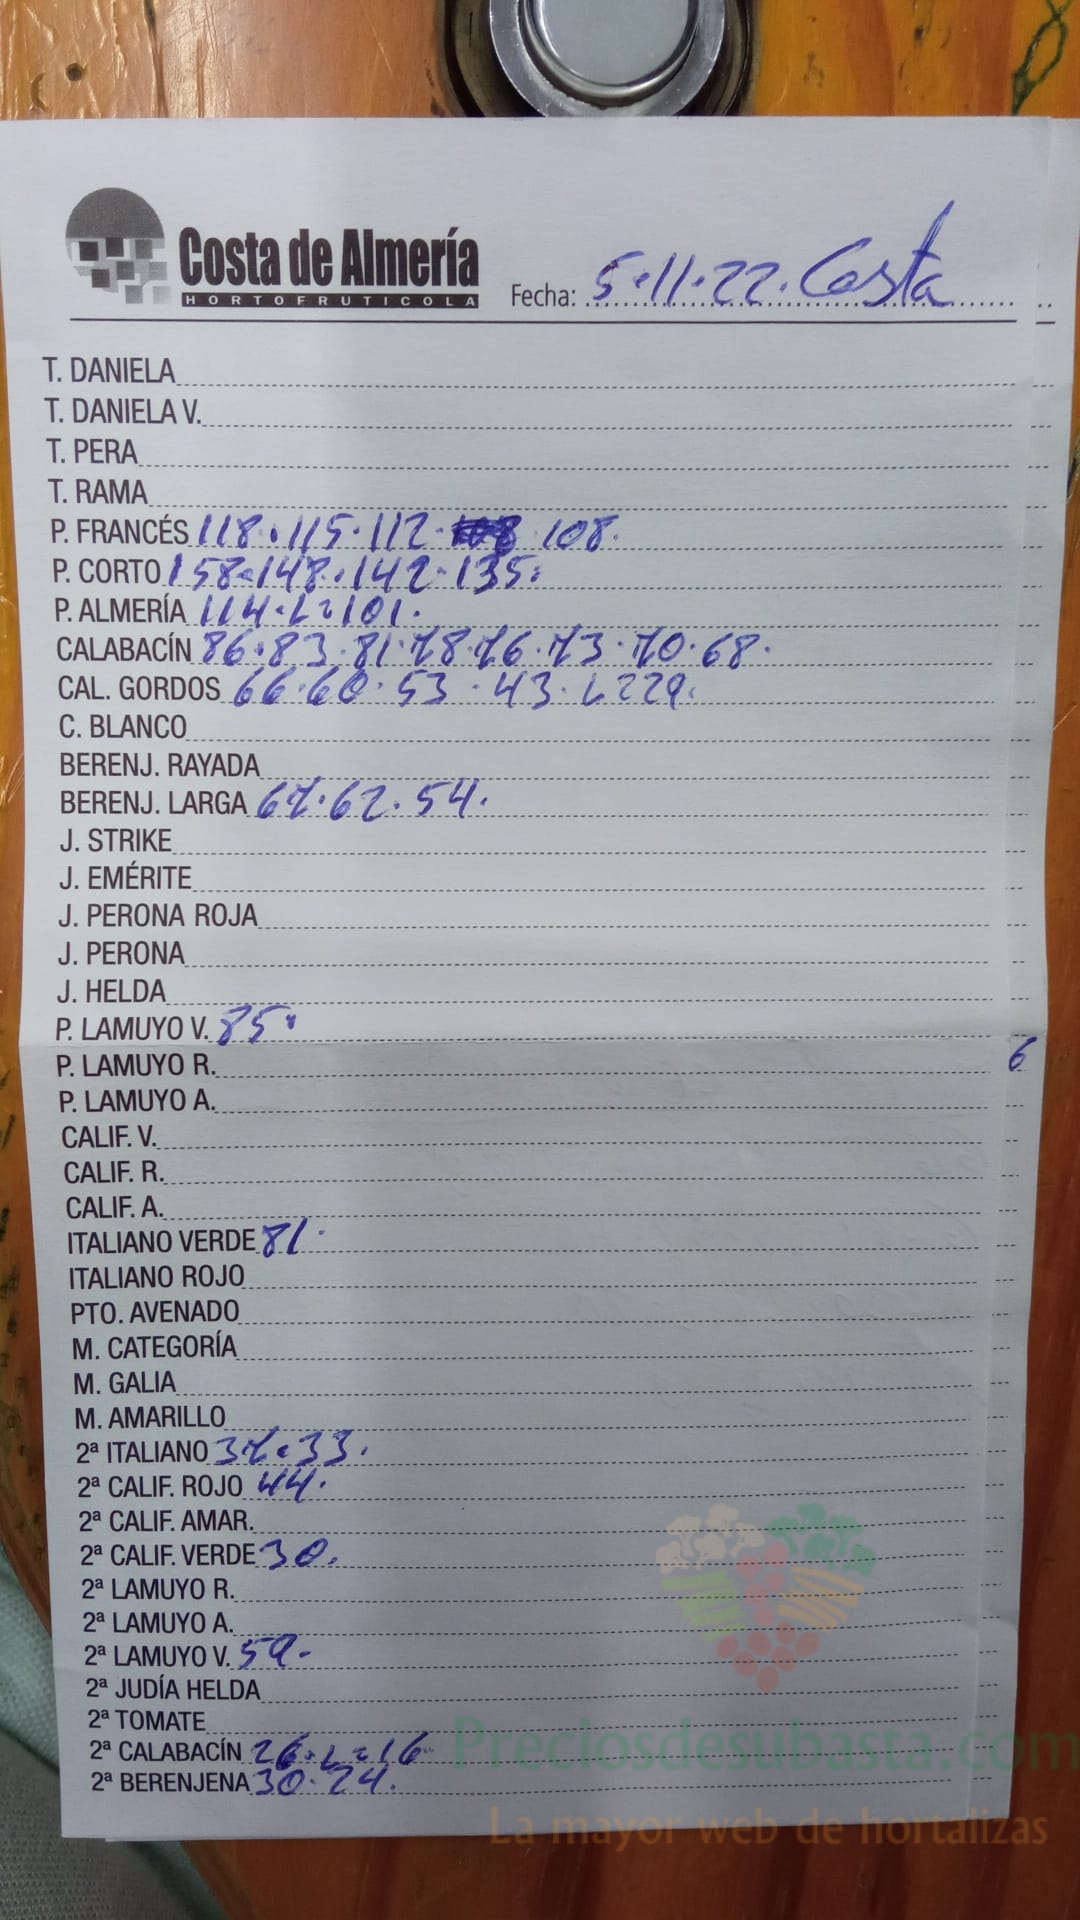 Costa de Almería
HORTOFRUTICOLA
Fecha: 5.11.22. Costa
T. DANIELA
T. DANIELA V.
T. PERA
T. RAMA
P. FRANCÉS 118.115.112. 108.
P. CORTO 158.148.142.135.
P. ALMERÍA 114.L=101.
CALABACÍN 86.83.81.78.76.73.70.68.
CAL. GORDOS 66.60.53.43.L=29.
C. BLANCO
BERENJ. RAYADA
BERENJ. LARGA 67.62.54.
J. STRIKE
J. EMÉRITE
J. PERONA ROJA
J. PERONA
J. HELDA
P. LAMUYO V. 85.
P. LAMUYO R. 6
P. LAMUYO A.
CALIF. V.
CALIF. R.
CALIF. A.
ITALIANO VERDE 81.
ITALIANO ROJO
PTO. AVENADO
M. CATEGORÍA
M. GALIA
M. AMARILLO
2ª ITALIANO 37.33.
2ª CALIF. ROJO 44.
2ª CALIF. AMAR.
2ª CALIF. VERDE 30.
2ª LAMUYO R.
2ª LAMUYO A.
2ª LAMUYO V. 59.
2ª JUDÍA HELDA
2ª TOMATE
2ª CALABACÍN 26.L=16
2ª BERENJENA 30.24.
Preciosdesubasta.com
La mayor web de hortalizas